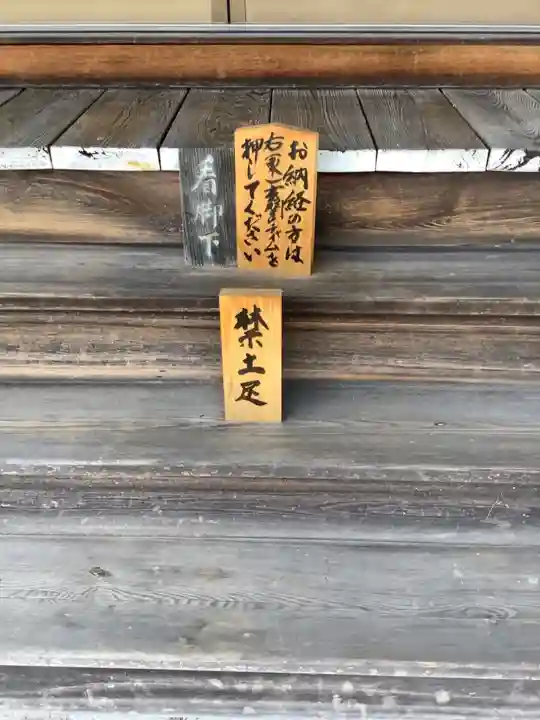 お納経の方は
右玄関チャイムを
押してください
看脚下
禁土足